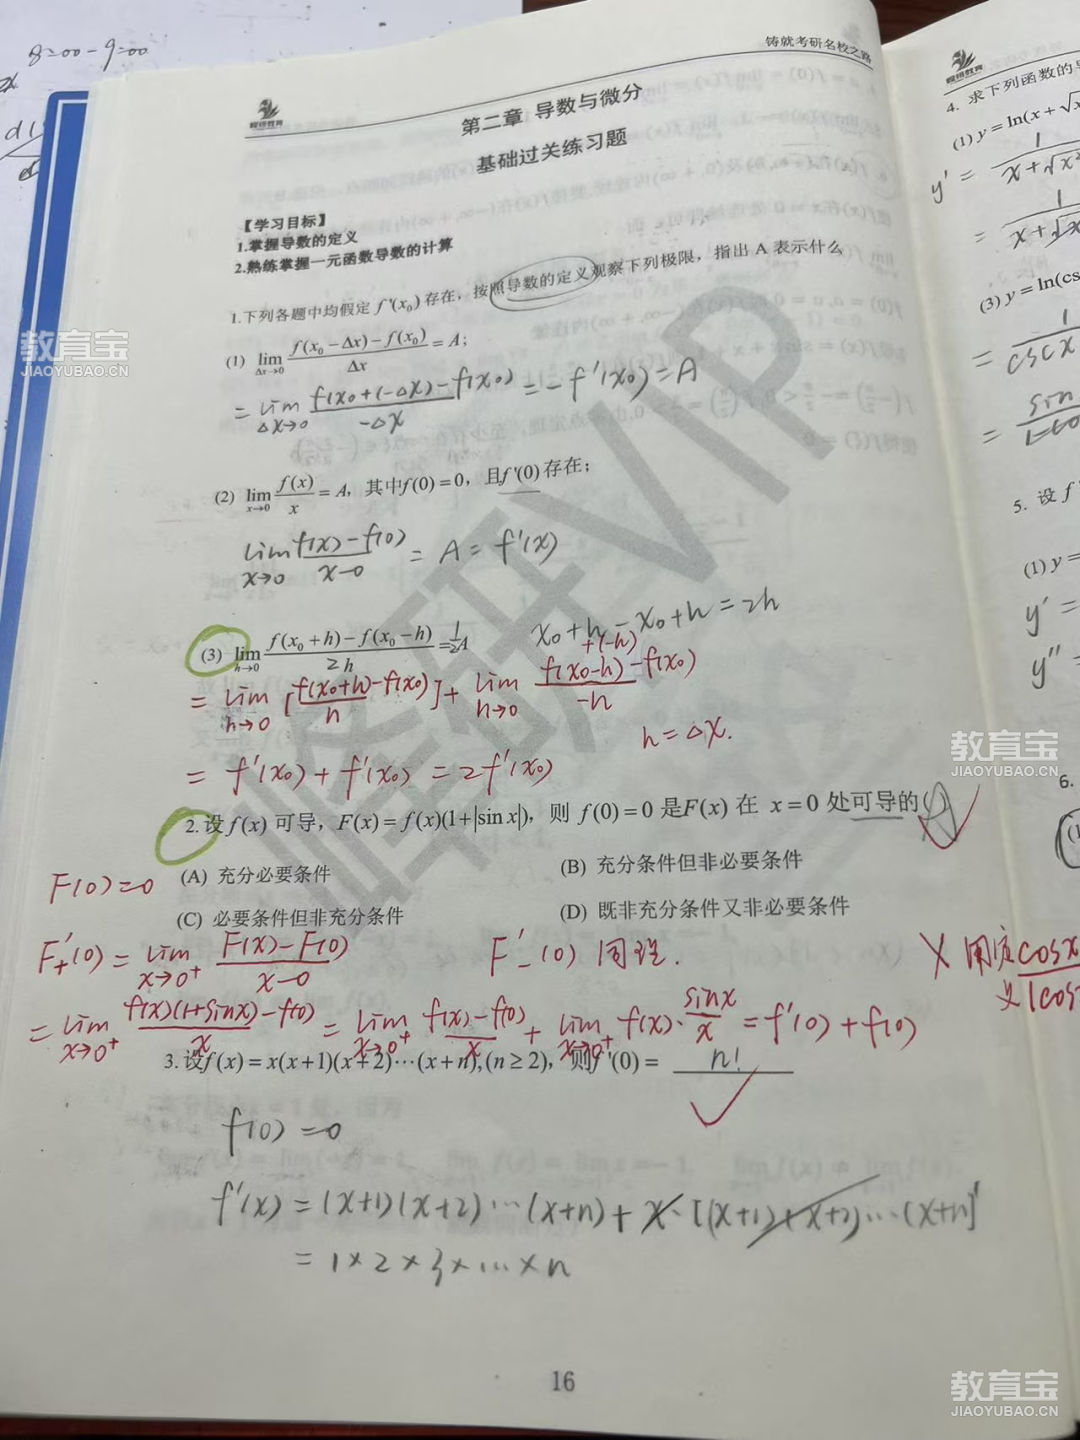 8=00-9=00
铸就考研名校之路
第二章 导数与微分
基础过关练习题
【学习目标】
1.掌握导数的定义
2.熟练掌握一元函数导数的计算
1.下列各题中均假定 f'(x₀) 存在，按照导数的定义观察下列极限，指出 A 表示什么
(1) lim_{Δx→0} (f(x₀-Δx)-f(x₀))/Δx = A;
= lim_{Δx→0} (f(x₀+(-Δx)-f(x₀))/-Δx = -f'(x₀)=A
(2) lim_{x→0} f(x)/x = A，其中f(0)=0，且f'(0)存在；
lim_{x→0} (f(x)-f(0))/(x-0) = A = f'(x)
(3) lim_{h→0} (f(x₀+h)-f(x₀-h))/2h = ½A
x₀+h-x₀+h=2h
+(-h)
= lim_{h→0} [(f(x₀+h)-f(x₀))/h] + lim_{h→0} (f(x₀-h)-f(x₀))/-h
h=Δx.
= f'(x₀)+f'(x₀)=2f'(x₀)
2.设f(x)可导，F(x)=f(x)(1+|sin x|)，则 f(0)=0 是F(x) 在 x=0 处可导的(A)
F(0)=0
(A) 充分必要条件
(B) 充分条件但非必要条件
(C) 必要条件但非充分条件
(D) 既非充分条件又非必要条件
F₊'(0) = lim_{x→0⁺} (F(x)-F(0))/(x-0)
F₋'(0) 同理.
= lim_{x→0⁺} (f(x)(1+sinx)-f(0))/x = lim_{x→0⁺} (f(x)-f(0))/x + lim_{x→0⁺} f(x)·sinx/x = f'(0)+f(0)
3.设f(x)=x(x+1)(x+2)⋯(x+n),(n≥2)，则f'(0)= n!
f(0)=0
f'(x)=(x+1)(x+2)⋯(x+n)+x·[(x+1)+x+2)⋯(x+n]'
=1×2×3×⋯×n
16
4. 求下列函数的导
(1) y=ln(x+√
y' = 1/(x+√x²
= 1/(x+√x
(3) y=ln(cs
= 1/cscx
= sin
5. 设 f
(1) y=
y'=
y''=
6.
教育宝
JIAOYUBAO.CN
教育宝
JIAOYUBAO.CN
教育宝
JIAOYUBAO.CN